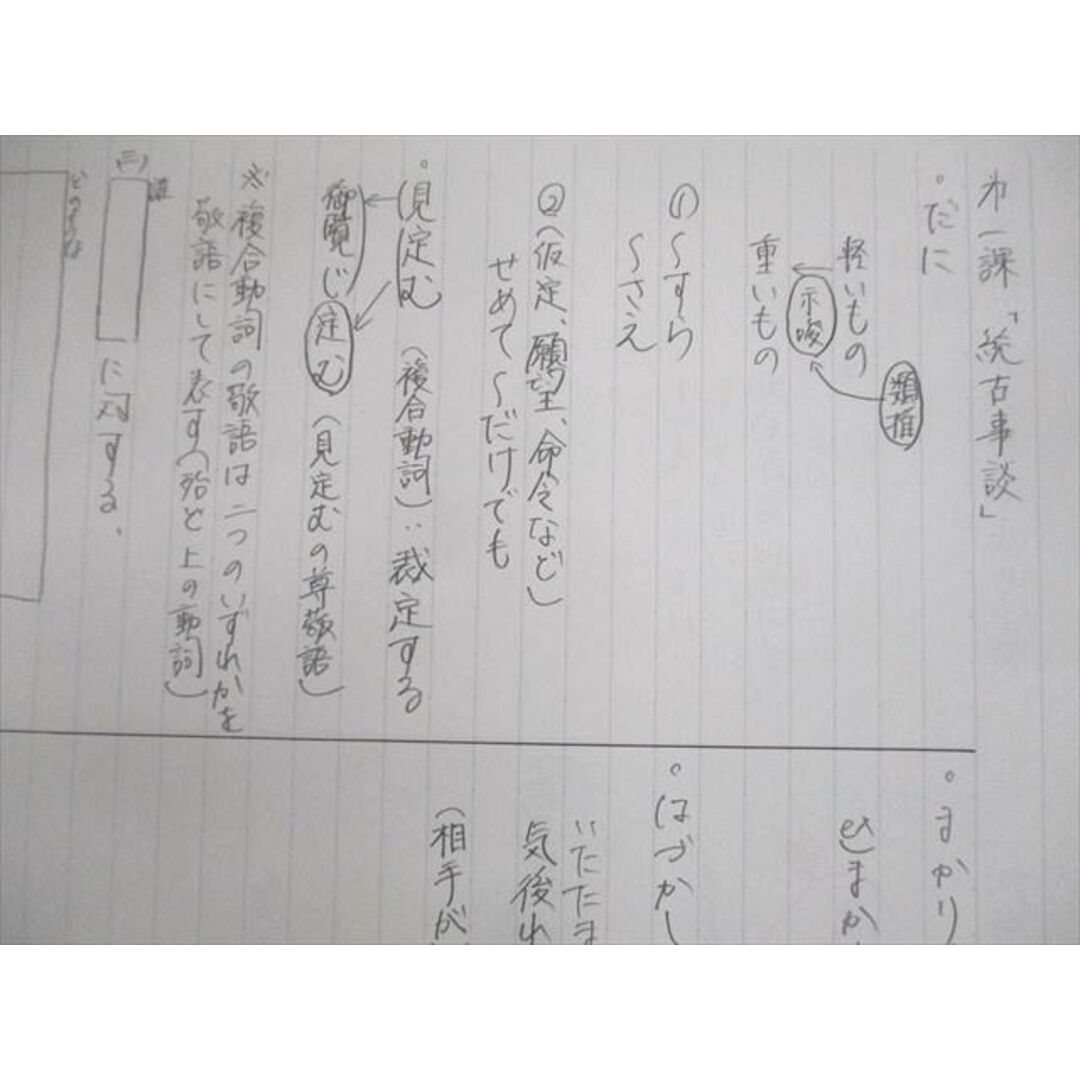 第一課「続古事談」
。だに
類推
軽いもの
示唆
重いもの
①〜すら
〜さえ
②(仮定、願望、命令など)
せめて〜だけでも
。見定む (複合動詞):裁定する
御覧じ定む (見定むの尊敬語)
※複合動詞の敬語は二つのいずれかを
敬語にして表す(殆ど上の動詞)
(三)
誰
に対する、
どのような
。まかり
ex)まか
。はづかし
いたたま
気後れ
(相手が